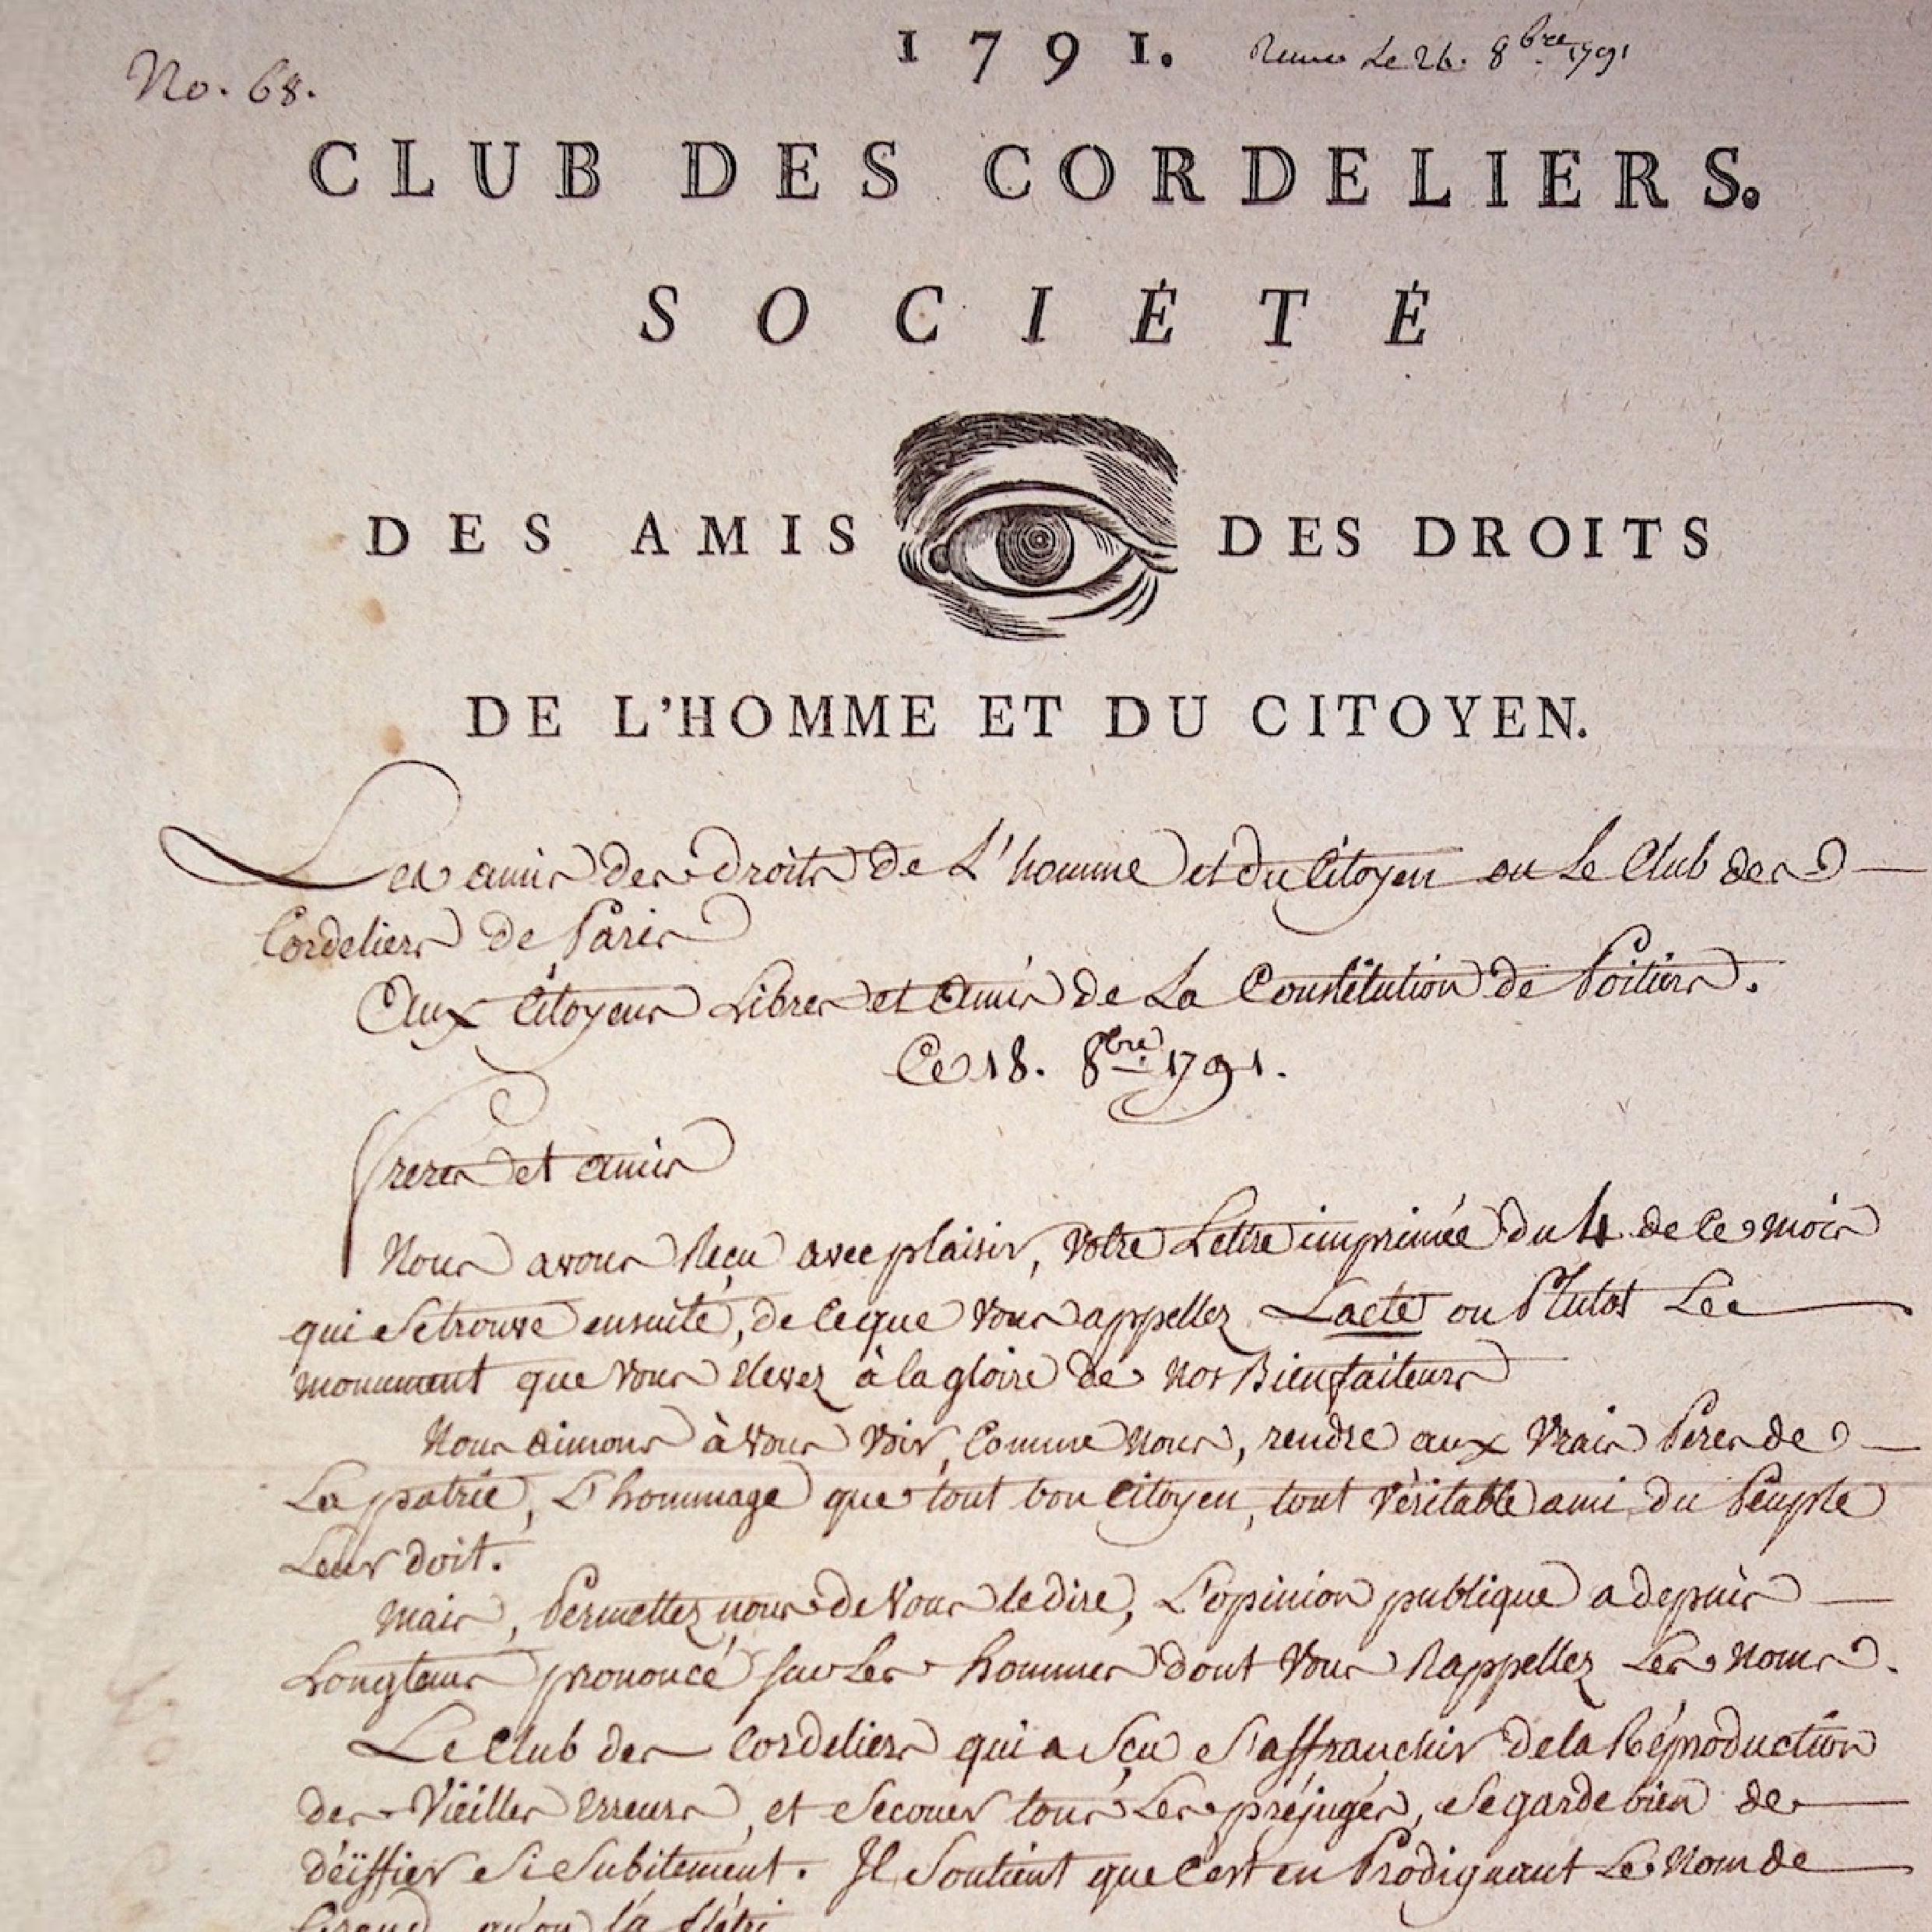 No. 68.
1791. Le 26. 8bre 1791
CLUB DES CORDELIERS.
SOCIÉTÉ
DES AMIS DES DROITS
DE L'HOMME ET DU CITOYEN.
Les amis des droits de L'homme et du Citoyen ou Le Club des
Cordeliers de Paris
Aux Citoyens Libres et Amis de La Constitution de Poitiers.
Ce 18. 8bre 1791.
freres et amis
Nous avons Reçu avec plaisir, votre Lettre imprimée du 4 de ce mois
qui se trouve ensuite, de ce que vous appellez Lacte ou Plutot Le
monument que vous elevez à la gloire de nos Bienfaiteurs
Nous aimons à vous voir, comme nous, rendre aux vrais Peres de
La patrie, L'hommage que tout bon citoyen, tout véritable ami du Peuple
Leur doit.
Mais, Permettez nous de vous le dire, L'opinion publique a depuis
Longtems prononcé sur Les hommes dont vous Rappellez Les noms.
Le Club des Cordeliers qui a sçu s'affranchir de la Réproduction
des vieilles erreurs, et secouer tous Les préjugés, se garde bien de
déiffier si subitement. Il soutient que c'est en Prodiguant Le nom de
Grand qu'on l'a flétri